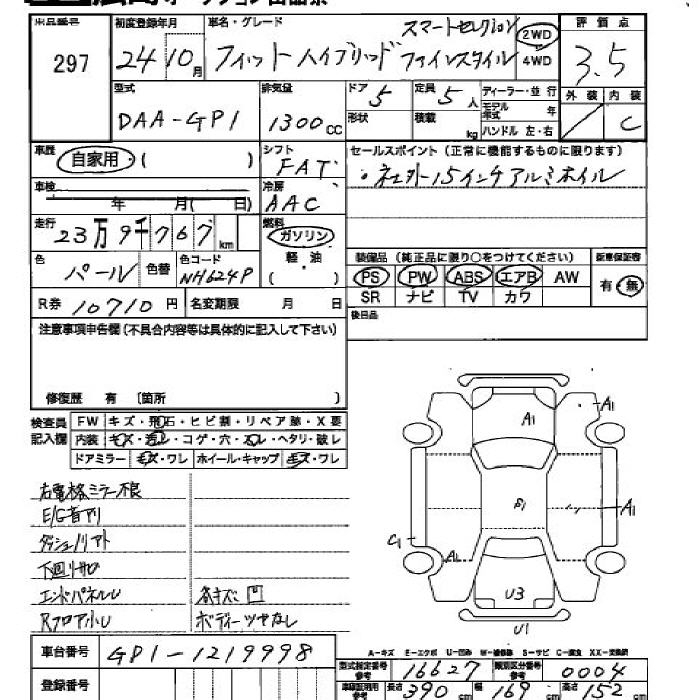 オークション出品票
出品番号
297
初度登録年月
24 10月
車名・グレード
スマートセレクション
フィットハイブリッド ファインスタイル
2WD
4WD
評価点
3.5
型式
DAA-GP1
排気量
1300cc
ドア 5
形状
定員 5人
積載 kg
ディーラー・並行
モデル年式 年
ハンドル 左・右
外装 内装
C
車歴
自家用・( )
シフト
FAT
セールスポイント(正常に機能するものに限ります)
・社外15インチアルミホイル
車検
年 月( 日)
冷房
AAC
走行
23万9千767km
燃料
ガソリン
軽・油
( )
色
パール
色替
色コード
NH624P
装備品(純正品に限り○をつけてください)
PS PW ABS エアB AW
SR ナビ TV カワ
新車保証書
有・無
R券 10710円
名変期限 月 日
後日品
注意事項申告欄(不具合内容等は具体的に記入して下さい)
修復歴 有 〔箇所 〕
検査員記入欄
FW キズ・飛石・ヒビ割・リペア跡・X要
内装 キズ・汚レ・コゲ・穴・スレ・ヘタリ・破レ
ドアミラー キズ・ワレ ホイール・キャップ キズ・ワレ
右電格ミラー不良
E/G音アリ
ダッシュノリアト
下廻リサビ
エンドパネルU
RフロアホU
各キズ凹
ボディーツヤなし
A1
A1
B1
A1
C1
A1
U3
U1
車台番号
GP1-1219998
登録番号
A-キズ E-エクボ U-凹み W-補修跡 S-サビ C-腐食 XX-交換済
型式指定番号 参考 16627
類別区分番号 参考 0004
車庫証明用 参考 長さ 390cm 幅 169cm 高さ 152cm